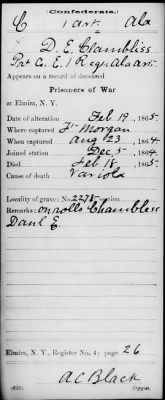 Confederate.
C 1 art. Ala
D. E. Chambliss
Pvt Co. E. 1 Reg. Ala art.
Appears on a record of deceased
Prisoners of War
at Elmira, N. Y.
Date of alteration Feb 19, 1865.
Where captured Ft Morgan
When captured Aug 23, 1864.
Joined station Dec 5, 1864.
Died Feb 18, 1865.
Cause of death Variola
Locality of grave: No. 2275
Remarks: On rolls Chambliss
Danl E.
Elmira, N. Y., Register No. 4; page 26
(635)
A C Black